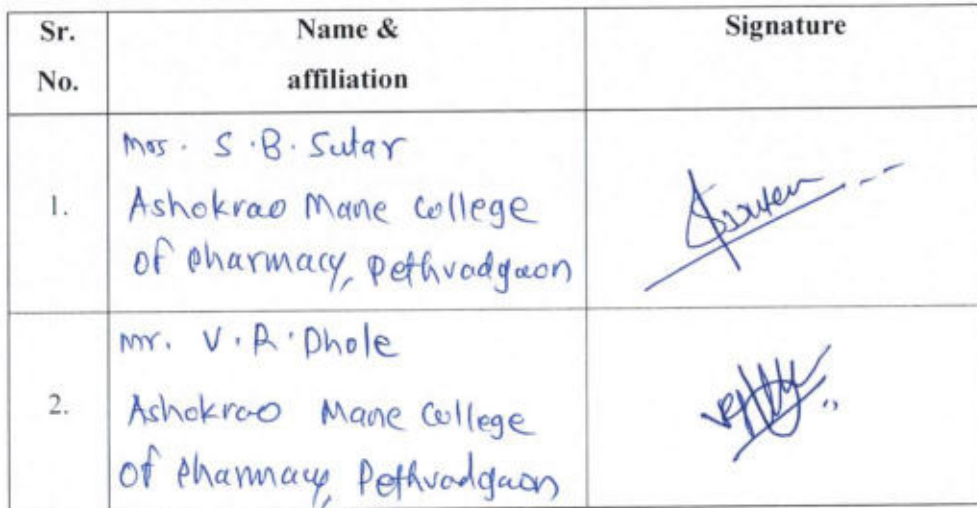 Sr. No.
Name & affiliation
Signature
1.
Mrs. S.B. Sutar
Ashokrao Mane College
of Pharmacy, Pethvadgaon
2.
Mr. V.R. Dhole
Ashokrao Mane College
of Pharmacy, Pethvadgaon